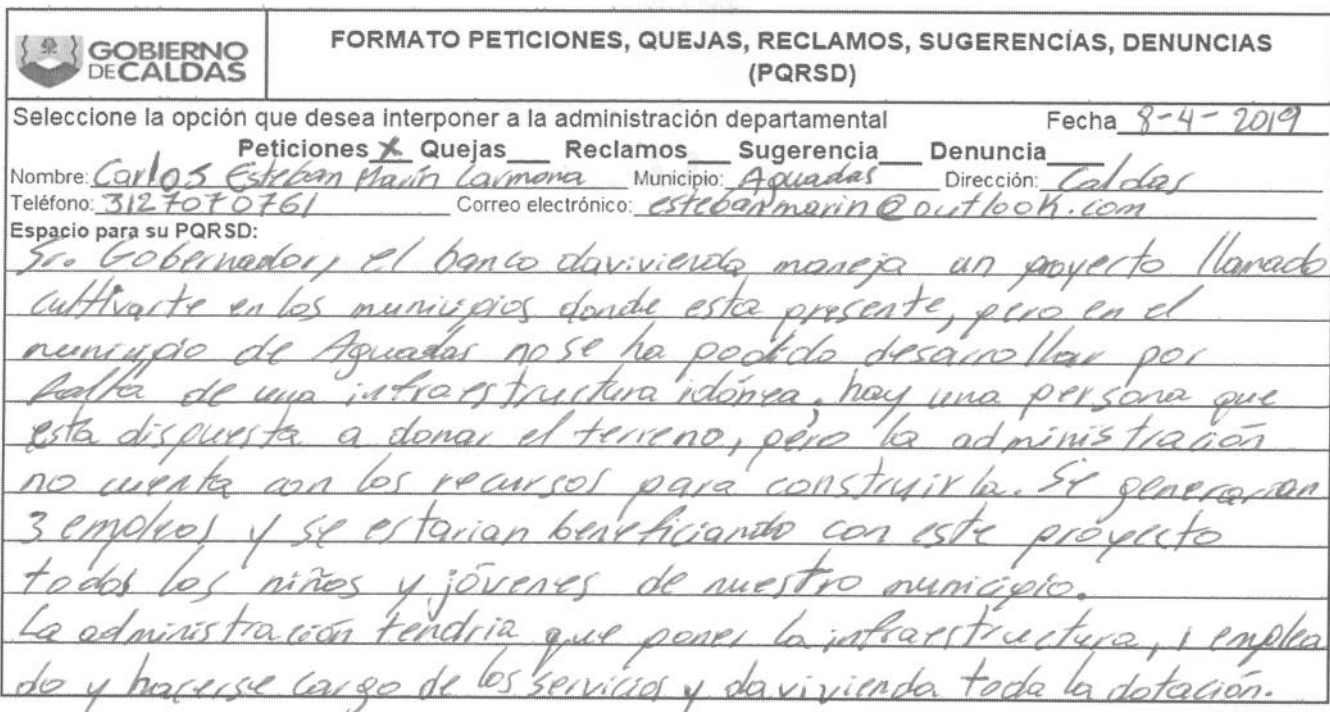 GOBIERNO
DE CALDAS
FORMATO PETICIONES, QUEJAS, RECLAMOS, SUGERENCÍAS, DENUNCIAS
(PQRSD)
Seleccione la opción que desea interponer a la administración departamental Fecha 8-4-2019
Peticiones X Quejas___ Reclamos___ Sugerencia___ Denuncia___
Nombre: Carlos Esteban Marín Carmona Municipio: Aguadas Dirección: Caldas
Teléfono: 3127070761 Correo electrónico: estebanmarin@outlook.com
Espacio para su PQRSD:
Sr. Gobernador, el banco davivienda maneja un proyecto llamado
cultivarte en los municipios donde esta presente, pero en el
municipio de Aguadas no se ha podido desarrollar por
falta de una infraestructura idónea, hay una persona que
esta dispuesta a donar el terreno, pero la administración
no cuenta con los recursos para construirla. Se generarian
3 empleos y se estarian beneficiando con este proyecto
todos los niños y jóvenes de nuestro municipio.
La administración tendria que poner la infraestructura, 1 emplea
do y hacerse cargo de los servicios y davivienda toda la dotación.